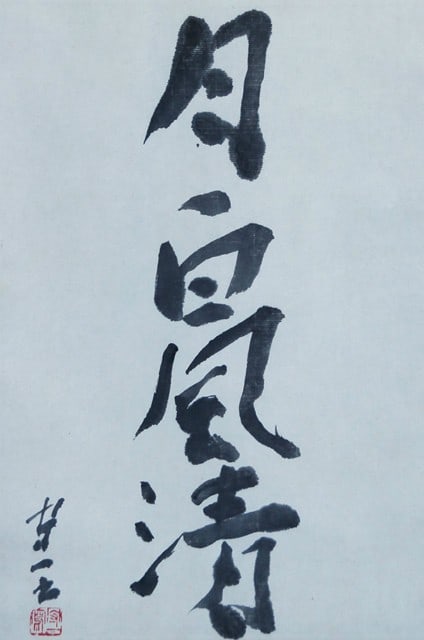 月白風清